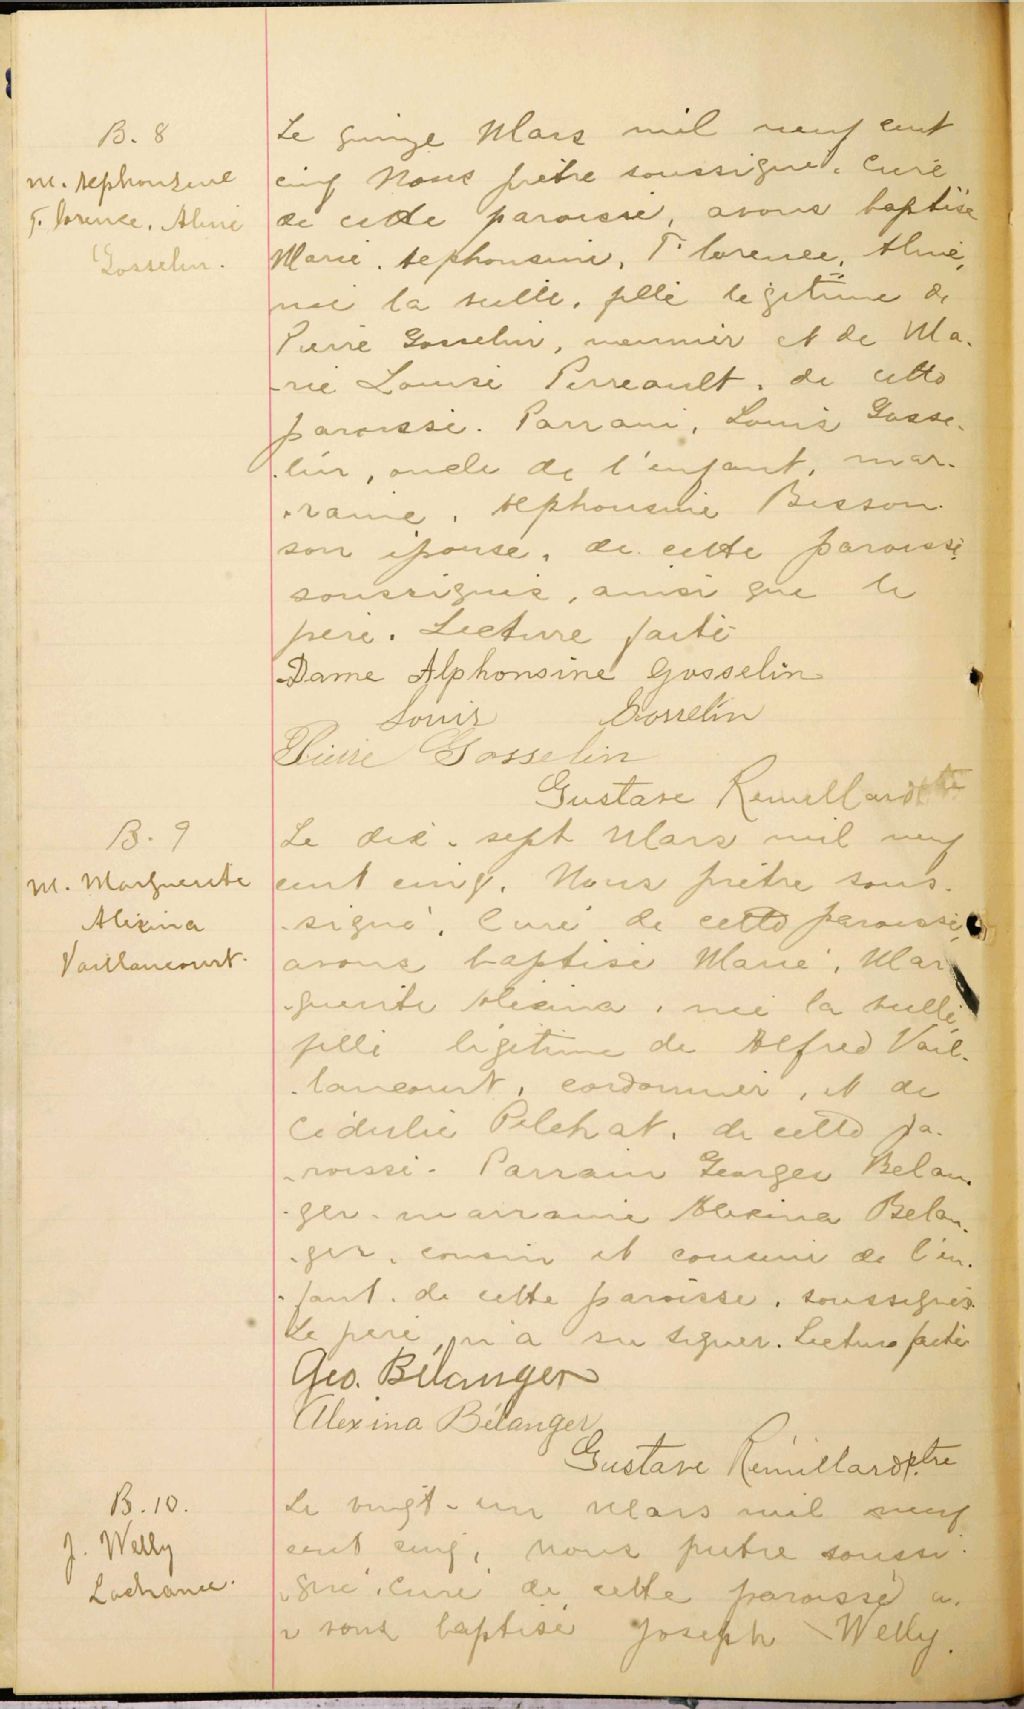 B. 8
M. Alphonsine
Florence, Aline
Gosselin.
Le quinze Mars mil neuf cent
cinq Nous prêtre soussigné, Curé
de cette paroisse, avons baptisé
Marie, Alphonsine, Florence, Aline,
née la veille, fille légitime de
Pierre Gosselin, meunier et de Ma-
-rie Louise Perreault, de cette
paroisse. Parrain, Louis Gosse-
-lin, oncle de l'enfant, mar-
-raine, Alphonsine Bisson
son épouse, de cette paroisse,
soussignés, ainsi que le
père. Lecture faite
Dame Alphonsine Gosselin
Louis Gosselin
Pierre Gosselin
Gustave Remillard ptre
B. 9
M. Marguerite
Alexina
Vaillancourt.
Le dix-sept Mars mil neuf
cent cinq, Nous prêtre sous-
-signé, Curé de cette paroisse,
avons baptisé Marie, Mar
-guerite Alexina, née la veille,
fille légitime de Alfred Vail-
-lancourt, cordonnier, et de
Cédulie Pelchat, de cette pa-
-roisse. Parrain Georges Belan-
-ger, marraine Alexina Belan-
-ger, cousin et cousine de l'en-
-fant, de cette paroisse, soussignés.
Le père n'a su signer. Lecture faite
Geo. Bélanger
Alexina Bélanger
Gustave Rémillard ptre
B. 10.
J. Welly
Lachance.
Le vingt-un Mars mil neuf
cent cinq, nous prêtre soussi-
-gné, Curé de cette paroisse a-
-vons baptisé Joseph Welly.